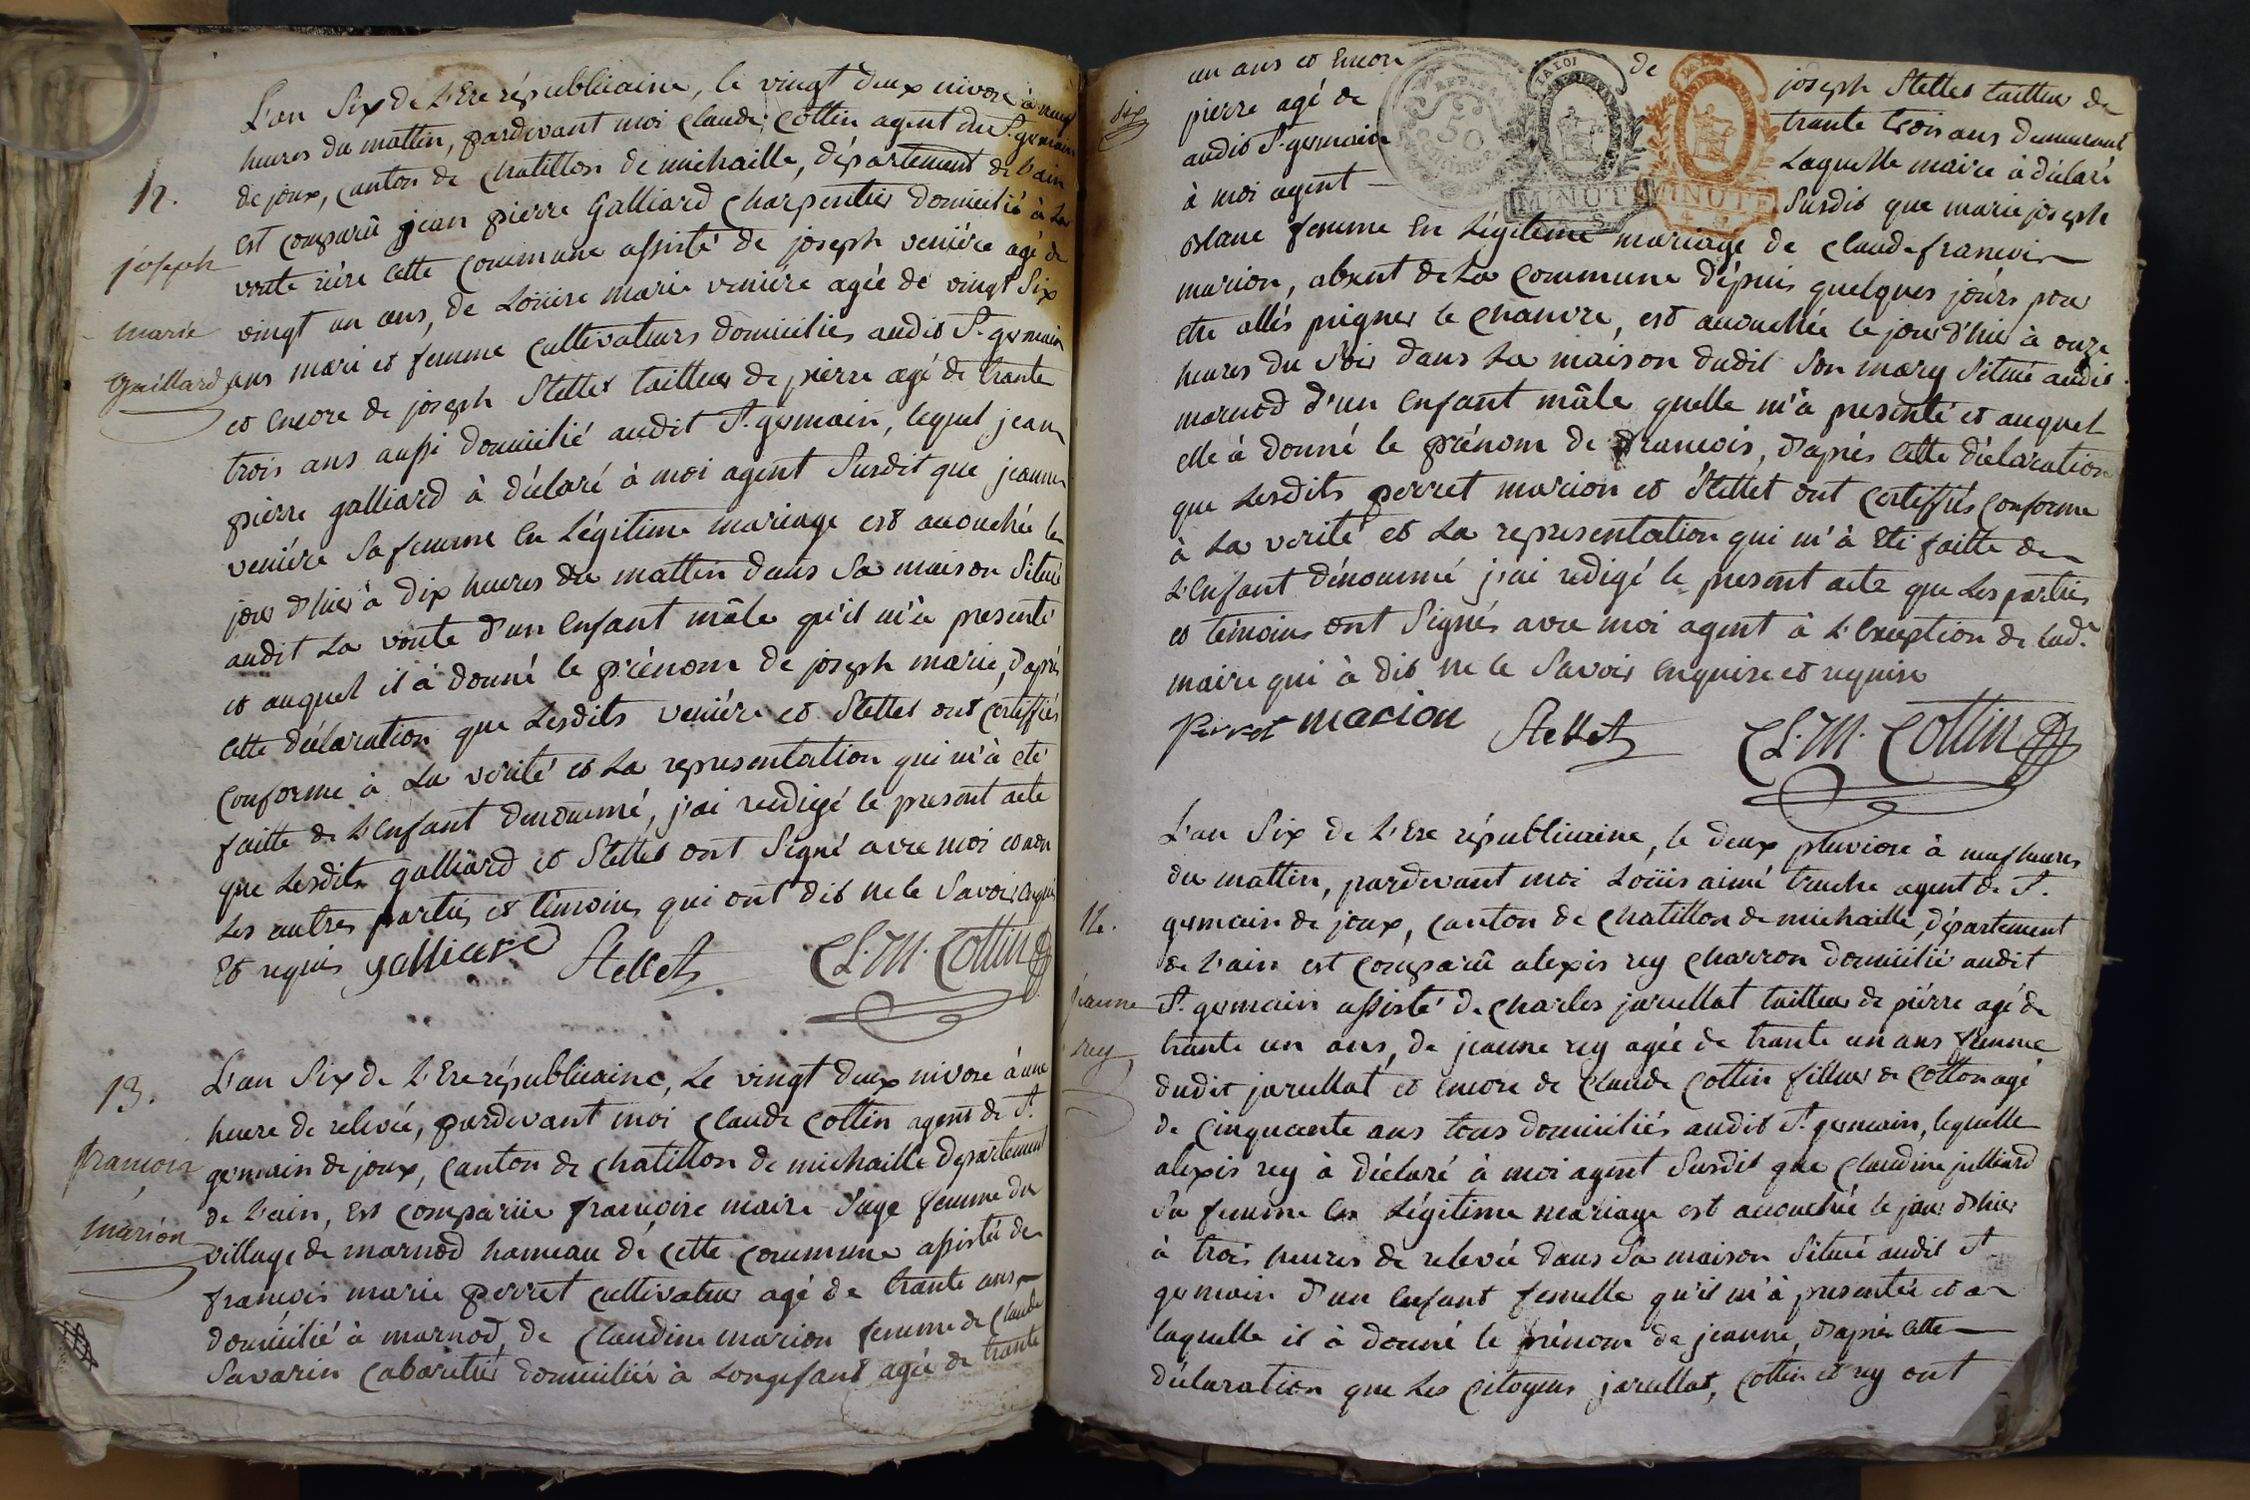 L'an Six de L'Ere républicaine, le vingt deux nivose à neuf
heures du mattin, pardevant moi Claude Cottin agent du St. germain
12.
de joux, Canton de Chatillon de michaille, département de L'ain
est comparû jean pierre Galliard Charpentier domicilié à La
joseph
voute rière cette Commune assisté de joseph venière agé de
vingt un ans, de Loüise marie venière agée de vingt Six
marie
ans mari et femme Cultivateurs domiciliés audit St. germain
Gaillard
et encore de joseph Stellet tailleur de pierre agé de trante
trois ans aussi domicilié audit St. germain, lequel jean
pierre galliard à déclaré à moi agent Susdit que jeanne
venière Sa femme en Légitime mariage est accouchée le
jour d'hier à dix heures du mattin dans Sa maison Située
audit La voute d'un Enfant mâle qu'il m'a presenté
et auquel il à donné le prénom de joseph marie, d'après
Cette déclaration que Lesdits venière et Stellet ont certiffiés
Conforme à La verité et La representation qui m'à eté
faitte de L'Enfant denommé, j'ai redigé le present acte
que Lesdits galliard et Stellet ont Signé avec moi et non
Les autres parties et témoins qui ont dit ne le Savoir enquis
Et requis galliard Stellet CL. M. Cottin
13.
L'an Six de L'Ere républicaine, Le vingt deux nivose à une
heure de relevée, pardevant moi Claude Cottin agent de St.
francois
germain de joux, Canton de Chatillon de michaille département
de L'ain, Est Comparüe francoise maire Sage femme du
marion
village de marnod hameau de cette Commune assistée de
francois marie perret Cultivateur agé de trante ans
domicilié à marnod, de Claudine marion femme de Claude
Savarin Cabaretier domiciliée à Longefand agée de trante
un ans et Encore de joseph Stellet tailleur de
six
pierre agé de trante trois ans demeurant
audit St. germain Laquelle maire à déclaré
à moi agent Susdit que marie joseph
LA LOI
LA LOI
50
MINUTE
MINUTE
blanc femme En Légitime mariage de Claude francois
marion, absent de La Commune dépuis quelques jours pour
etre allés peigner le Chanvre, est accouchée le jour d'hier à onze
heures du Soir dans La maison dudit Son mary Située audit
marnod d'un Enfant mâle quelle m'à presenté et auquel
elle à donné le prénom de francois, d'aprés Cette déclaration
que Lesdits perret marion et Stellet ont Certiffiés Conforme
à La verité et La representation qui m'à Eté faitte de
L'Enfant dénommé j'ai redigé le present acte que Les parties
et témoins ont Signés avec moi agent à L'Exception de lade.
maire qui à dit ne le Savoir Enquise et requise
Perret marion Stellet CL. M. Cottin
L'an Six de L'Ere républicaine, le deux pluviose à neuf heures
du mattin, pardevant moi Loüis aimé truche agent de St.
14.
germain de joux, Canton de Chatillon de michaille, département
de L'ain est Comparû alexis rey Charron domicilié audit
jeanne
St. germain assisté de Charles jacullat tailleur de piérre agé de
rey
trante un ans, de jeanne rey agée de trante un ans femme
dudit jacullat et encore de Claude Cottin filleur de Cotton agé
de Cinquante ans tous domiciliés audit St. germain, lequelle
alexis rey à déclaré à moi agent Susdit que Claudine julliard
Sa femme En Légitime mariage est accouchée le jour d'hier
à trois heures de relevée dans Sa maison Située audit St.
germain d'un Enfant femelle qu'il m'à presentée et a
laquelle il à donné le prénom de jeanne, d'après Cette
déclaration que Les Citoyens jacullat, Cottin et rey ont